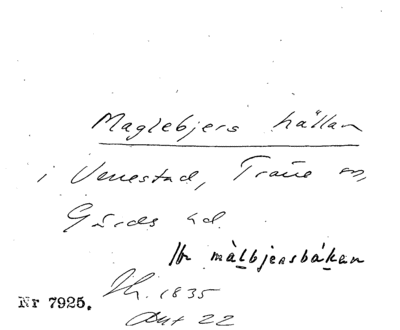 Maglebjers hällan
i Venestad, Träne sn,
Gärds hd.
màlbjersbákan
Nr 7925.
1835
Akt 22